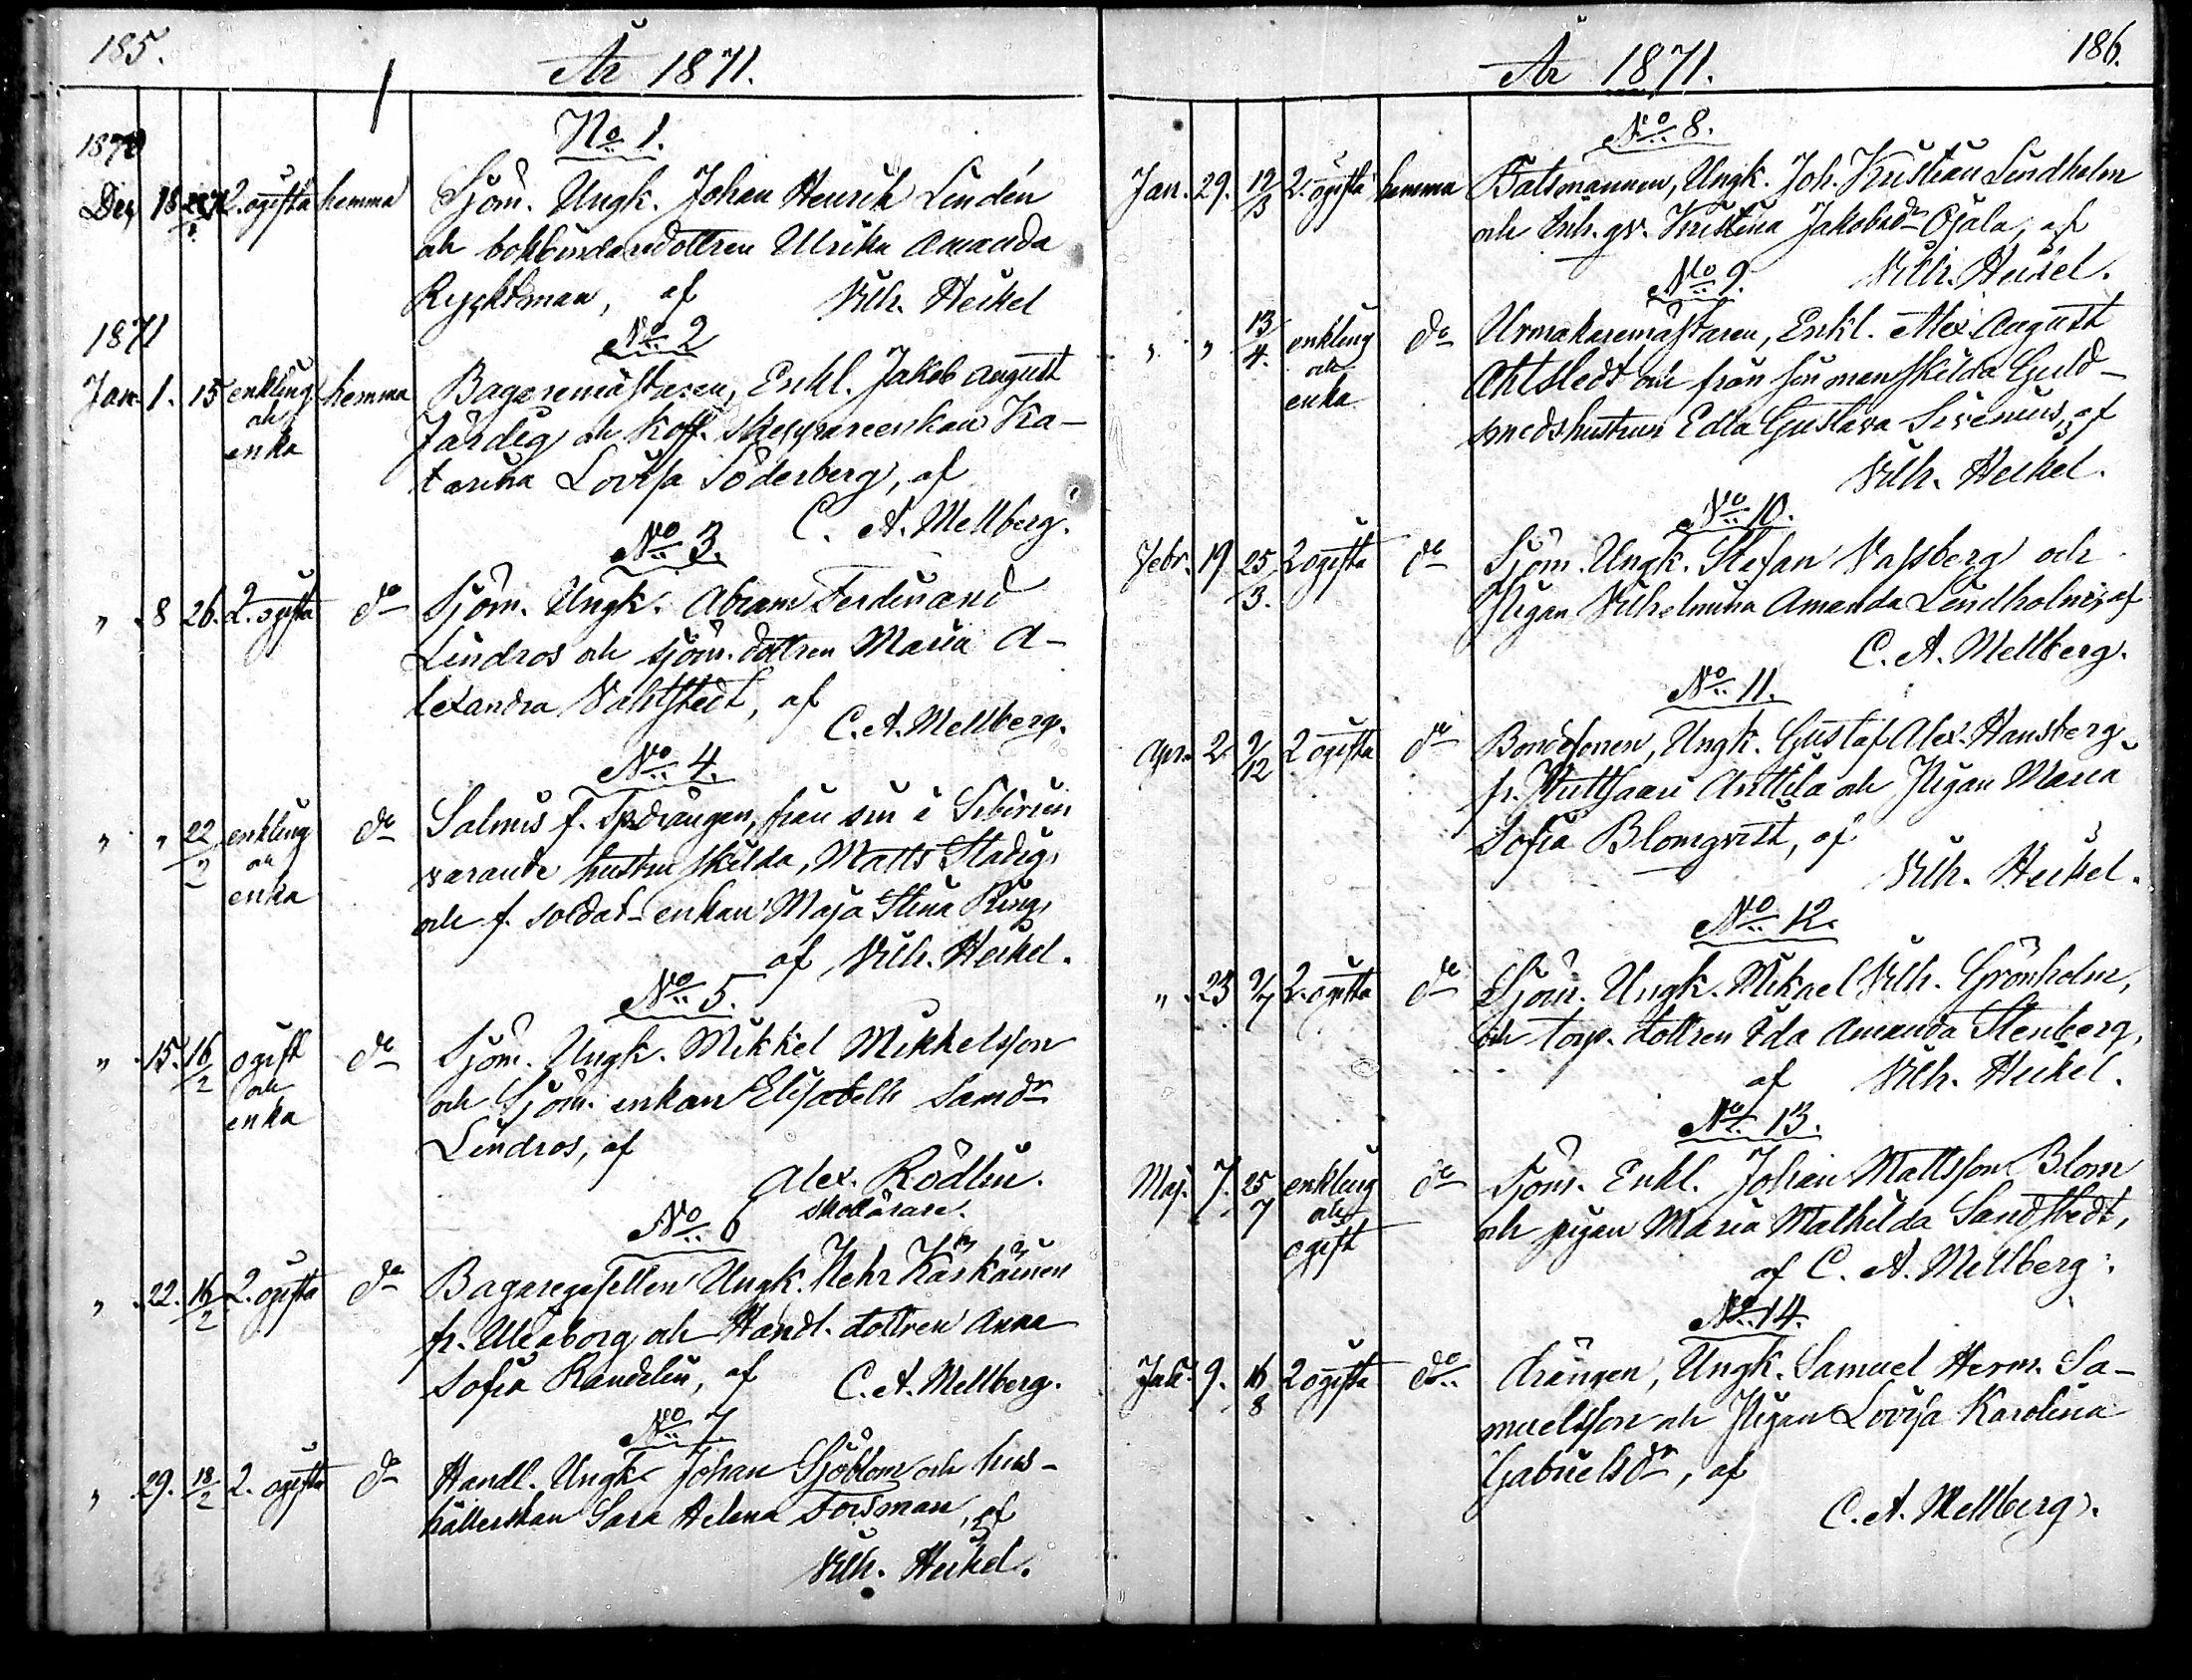 185.
År 1871.
1870
No 1.
Dec 18 2. ogifta hemma Sjöm. Ungk. Johan Henrik Lindén
och bokbindaredottren Ulrika Amanda
Ryyktman, af Vilh. Heikel
1871
No 2
Jan. 1. 15 enkling hemma Bagaremästaren, Enkl. Jakob August
och
enka
Färdig och Koff. skeppareenkan Ka-
tarina Lovisa Söderberg, af
C. A. Mellberg.
No 3.
" 8 26. 2. ogifta do Sjöm. Ungk. Abram Ferdinand
Lindros och sjöm. dottren Maria A-
lexandra Vahlstedt, af
C. A. Mellberg.
No 4.
" " 22/2 enkling do Salmis f. drängen, från sin i Sibirien
och
enka
varande hustru skilda, Matts Stadig,
och f. soldat-enkan Maja Stina Ring,
af Vilh. Heikel.
No 5.
" 15. 16/2 ogift do Sjöm. Ungk. Mikkel Mikkelsson
och
enka
och Sjöm. enkan Elisabeth Samdr
Lindros, af
Alex. Rödlin.
skollärare.
No 6
" 22. 16/2 2. ogifta do Bagaregesellen Ungk. Kärkäinen
fr. Uleåborg och Handl. dottren Anna
Sofia Randelin, af C. A. Mellberg.
No 7
" 29. 18/2 2. ogifta do Handl. Ungk. Johan Sjöblom och hus-
hållerskan Sara Helena Forsman, af
Vilh. Heikel.
186.
År 1871.
No 8.
Jan. 29. 19/3 2. ogifta hemma Båtsmannen, Ungk. Joh. Kristian Lindholm
och Inh. qv. Kristina Jakobsdr Ojala, af
Vilh. Heikel.
No 9.
" " 13/4. enkling do Urmakaremästaren, Enkl. Alex. August
och
enka
Ahlstedt och från sin man skilda Guld-
smedshustrun Edla Gustava Sirenius, af
Vilh. Heikel.
No 10.
Febr. 19 25/3. 2 ogifta do Sjöm. Ungk. Stefan Vassberg och
Pigan Vilhelmina Amanda Lindholm, af
C. A. Mellberg.
No 11.
Apr. 2 9/12 2 ogifta do Bondesonen, Ungk. Gustaf Alex. Hansberg
fr. Anttila och Pigan Maria
Sofia Blomqvist, af
Vilh. Heikel.
No 12.
" 23 9/7 2. ogifta do Sjöm. Ungk. Mikael Vilh. Grönholm,
och torp. dottren Ida Amanda Stenberg,
af Vilh. Heikel.
No 13.
Maj. 7. 25/7 enkling do Sjöm. Enkl. Johan Mattsson Blom
och
ogift
och pigan Maria Mathilda Sandstedt,
af C. A. Mellberg.
No 14.
Juli 9. 16/8 2 ogifta do Drängen, Ungk. Samuel Herm. Sa-
muelsson och Pigan Lovisa Karolina
Gabrielsdr, af
C. A. Mellberg.